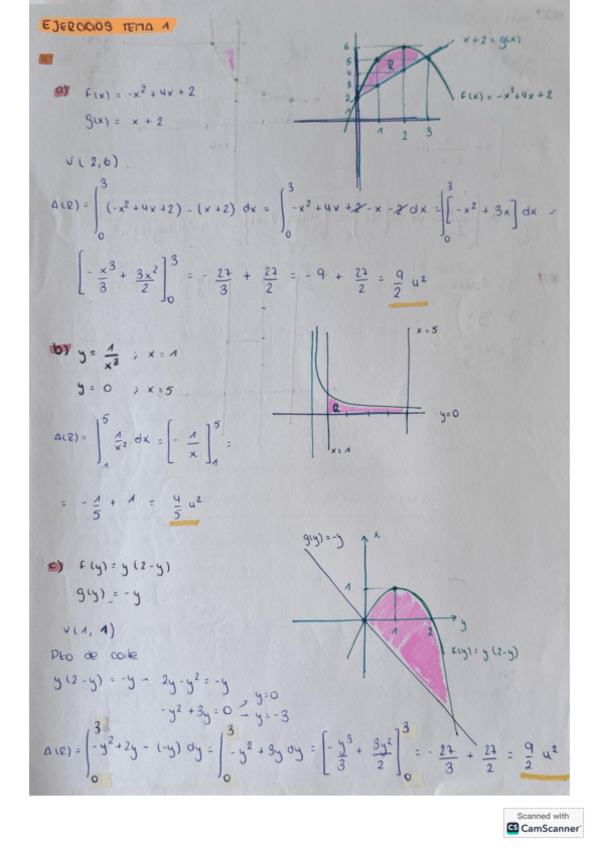 EJERCICIOS TEMA 1
a) f(x) = -x² + 4x + 2
g(x) = x + 2
V(2,6).
x+2 = g(x)
f(x) = -x²+4x+2
6
5
4
3
2
1
R
1 2 3
A(R) = ∫₀³ (-x²+4x+2) - (x+2) dx = ∫₀³ -x² + 4x + 2 - x - 2 dx = ∫₀³ [-x² + 3x] dx =
[-x³/3 + 3x²/2]₀³ = -27/3 + 27/2 = -9 + 27/2 = 9/2 u²
b) y = 1/x² ; x = 1
y = 0 ; x = 5
x=5
R
y=0
x=1
A(R) = ∫₁⁵ 1/x² dx = [-1/x]₁⁵ =
= -1/5 + 1 = 4/5 u²
c) f(y) = y(2-y)
g(y) = -y
V(1, 1)
g(y)=-y
x
1
1 2 y
f(y)= y(2-y)
Pto de corte
y(2-y) = -y - 2y-y² = -y
-y² + 3y = 0 y=0
y=-3
A(R) = ∫₀³ -y²+2y - (-y) dy = ∫₀³ -y² + 3y dy = [-y³/3 + 3y²/2]₀³ = -27/3 + 27/2 = 9/2 u²
Scanned with
CS CamScanner